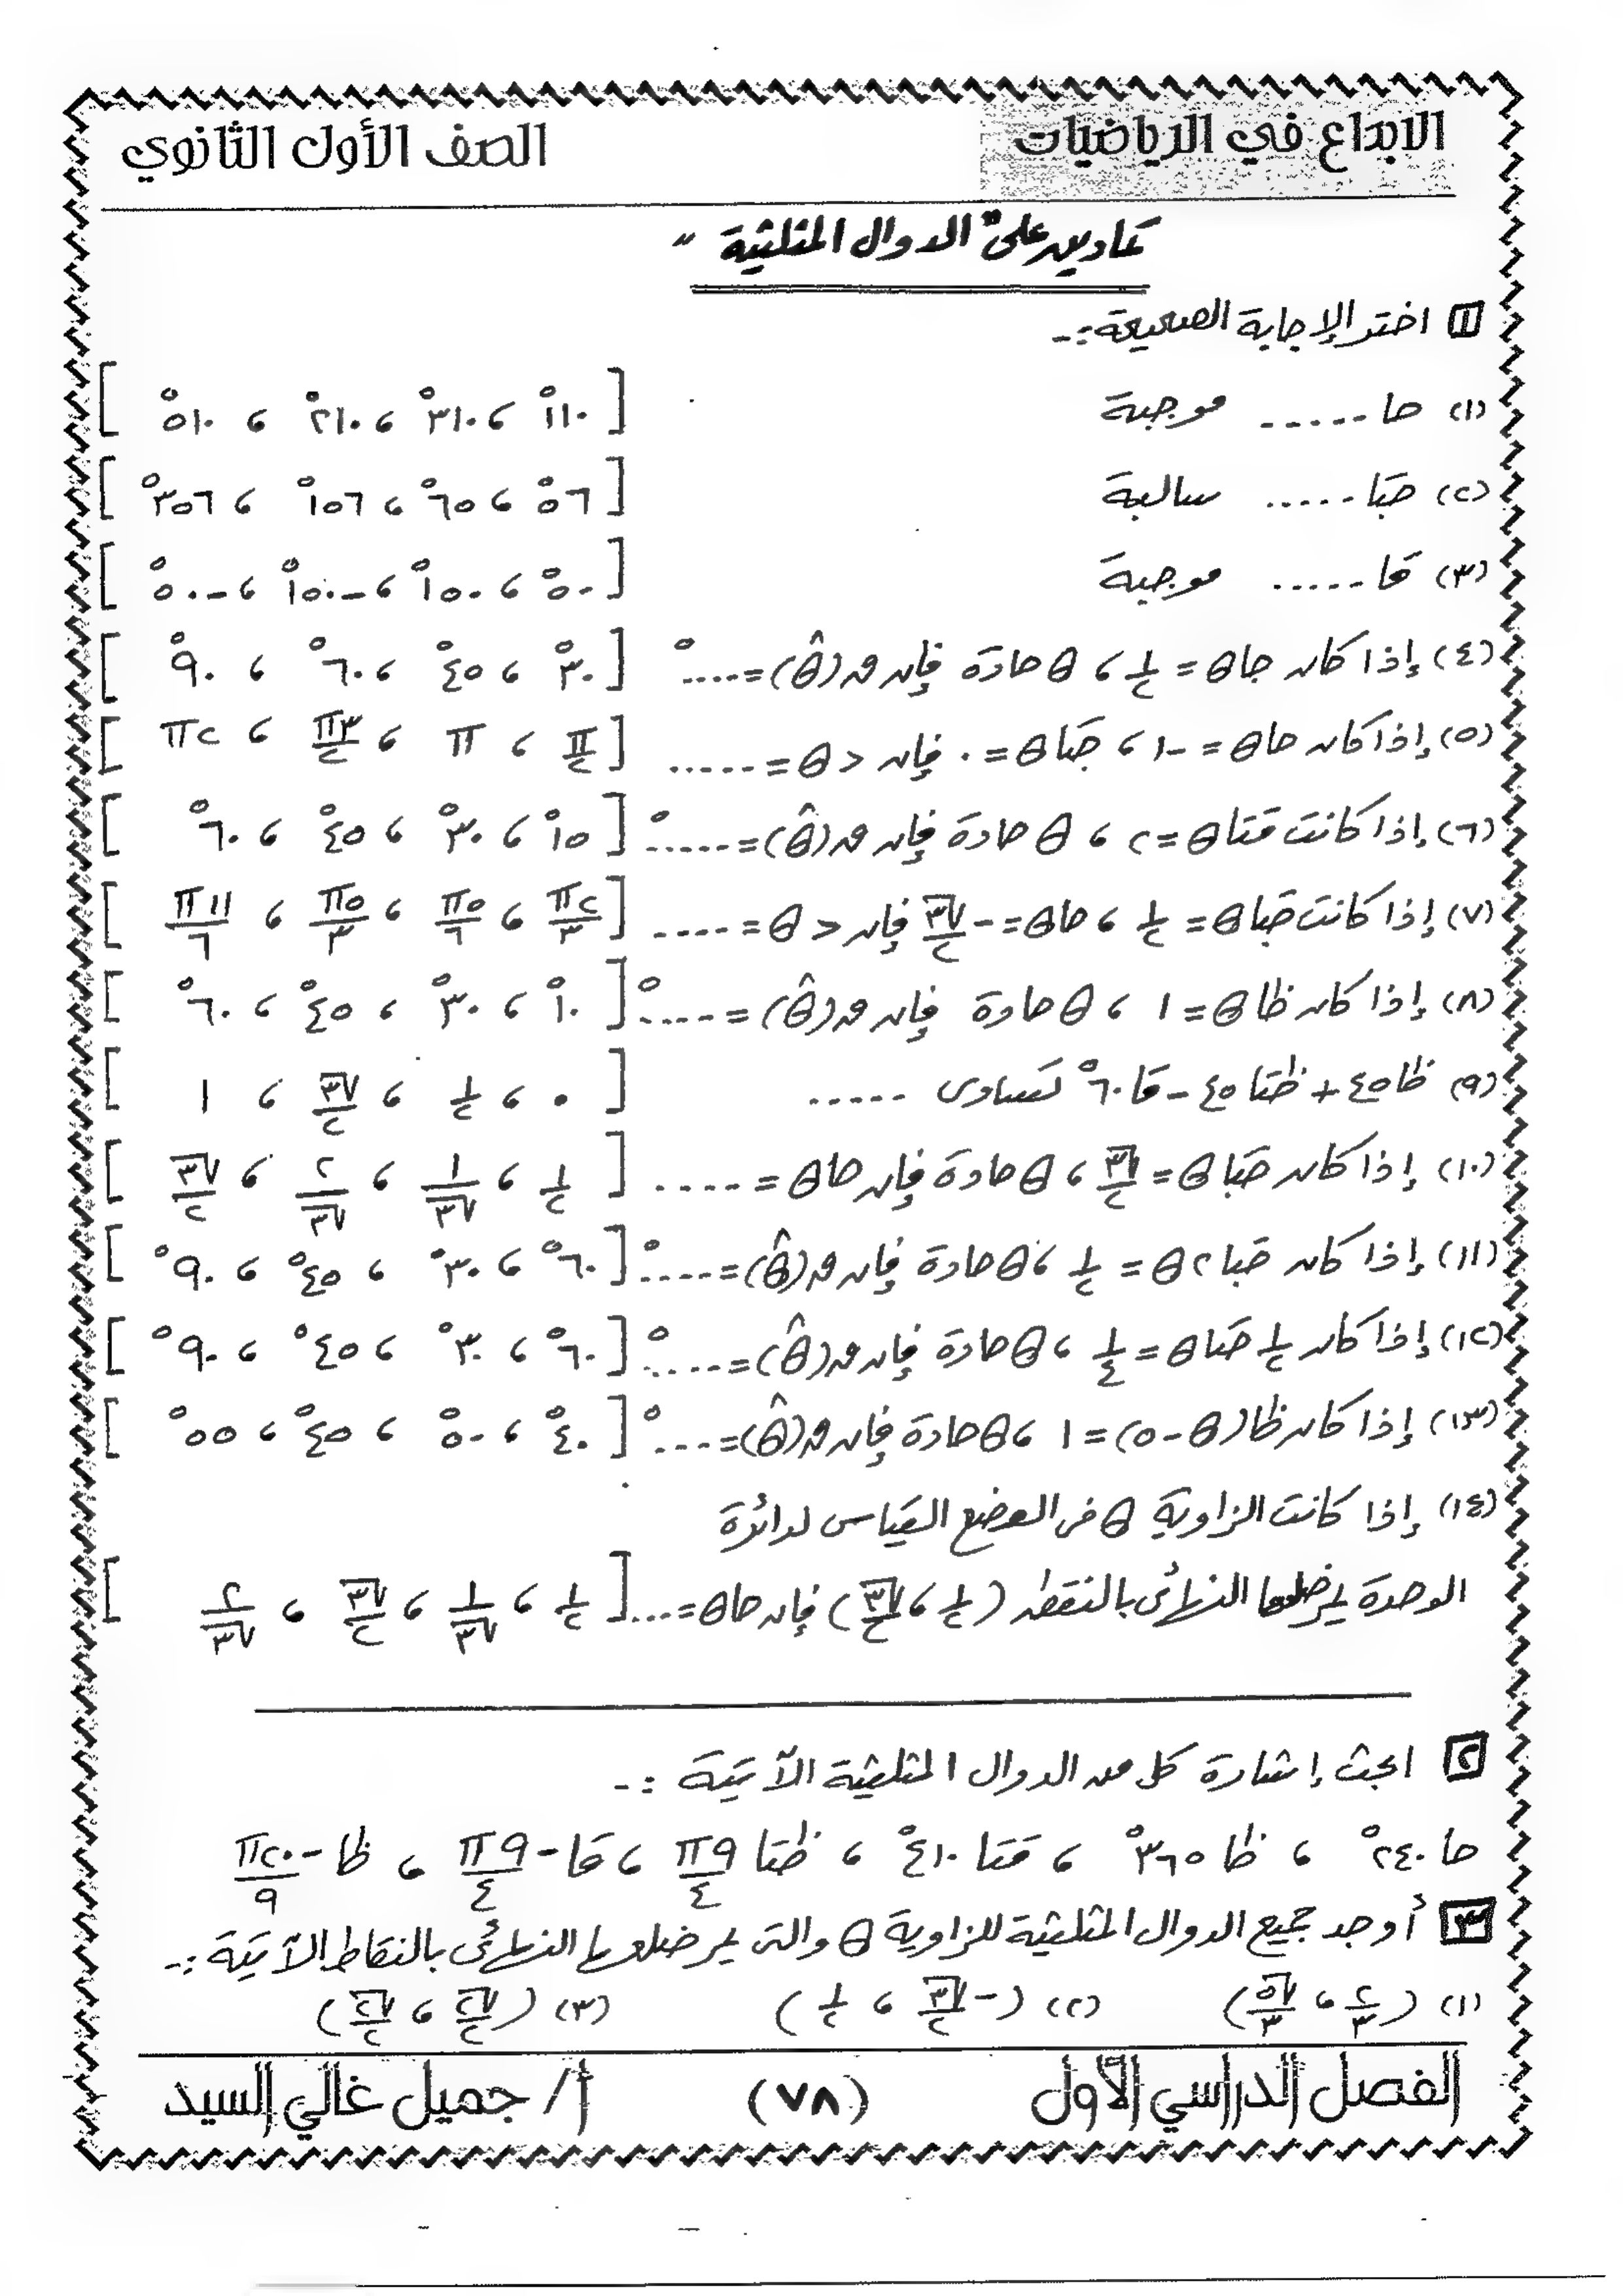 الابداع في الرياضيات
الصف الأول الثانوي
تمارين على "الدوال المثلثية"
١ اختر الإجابة الصحيحة :-
(١) حا ..... موجبة [١١٠° ، ٣١٠° ، ٢١٠° ، ٥١٠°]
(٢) حتا ..... سالبة [٥٦° ، ٦٥° ، ١٥٦° ، ٣٥٦°]
(٣) قا ..... موجبة [٥٠° ، ١٥٠° ، -١٥٠° ، -٥٠٠°]
(٤) إذا كان جا θ = ١/٢ ، θ حادة فإن ق(θ̂) = ....° [٣٠° ، ٤٥° ، ٦٠° ، ٩٠°]
(٥) إذا كان حا θ = -١ ، حتا θ = ٠ فإن > θ = ..... [π/٢ ، π ، ٣π/٢ ، ٢π]
(٦) إذا كانت قتا θ = ٢ ، θ حادة فإن ق(θ̂) = .....° [١٥° ، ٣٠° ، ٤٥° ، ٦٠°]
(٧) إذا كانت حتا θ = ١/٢ ، حا θ = -√٣/٢ فإن > θ = .... [٢π/٣ ، ٥π/٦ ، ٥π/٣ ، ١١π/٦]
(٨) إذا كان ظا θ = ١ ، θ حادة فإن ق(θ̂) = ....° [١٠° ، ٣٠° ، ٤٥° ، ٦٠°]
(٩) ظا ٤٥ + ظتا ٤٥ - قا ٦٠° تساوى ..... [٠ ، ١/٢ ، √٣/٢ ، ١]
(١٠) إذا كان حتا θ = √٣/٢ ، θ حادة فإن حا θ = .... [١/٢ ، ١/√٣ ، ٢/√٣ ، √٣/٢]
(١١) إذا كان حتا ٢θ = ١/٢ ، θ حادة فإن ق(θ̂) = ....° [٦٠° ، ٣٠° ، ٤٥° ، ٩٠°]
(١٢) إذا كان ١/٢ حتا θ = ١/٤ ، θ حادة فإن ق(θ̂) = ....° [٦٠° ، ٣٠° ، ٤٥° ، ٩٠°]
(١٣) إذا كان ظا (θ - ٥) = ١ ، θ حادة فإن ق(θ̂) = ....° [٤٠° ، ٥٠° ، ٤٥° ، ٥٥°]
(١٤) إذا كانت الزاوية θ فى الوضع القياسى لدائرة
الوحدة يمر ضلعها النهائى بالنقطة (١/٢ ، √٣/٢) فإن حا θ = .... [١/٢ ، ١/√٣ ، √٣/٢ ، ٢/√٣]
٢ ابحث إشارة كل من الدوال المثلثية الآتية :-
حا ٢٤٠° ، ظا ٣٦٥° ، قتا ٤١٠° ، ظتا ٩π/٤ ، قا -٩π/٤ ، ظا -٢٠π/٩
٣ أوجد جميع الدوال المثلثية للزاوية θ والتى يمر ضلعها النهائى بالنقاط الآتية :-
(١) (٢/٣ ، √٥/٣) (٢) (-√٣/٢ ، ١/٢) (٣) (√٢/٢ ، √٢/٢)
الفصل الدراسي الأول
(٧٨)
أ/ جميل غالي السيد